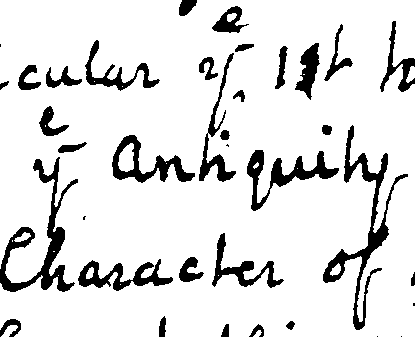 icular yᵉ 1st
yᵉ Antiquity
Character of